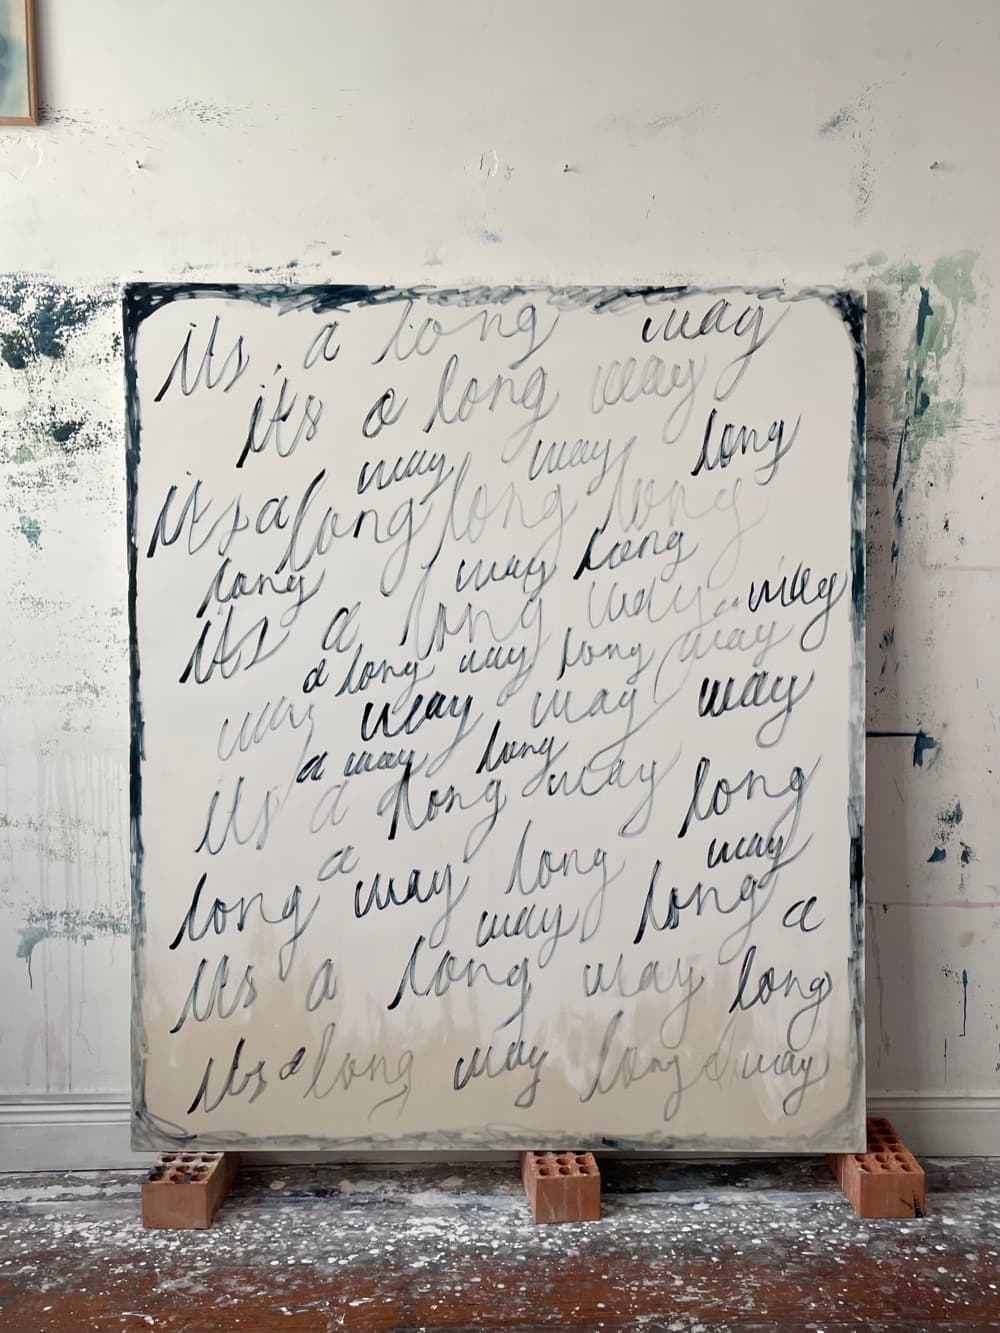 its a long way
its a long way
way way long
its a long long long
long way long
its a long way way
a long way long way
way way way way
a way long
its a long way long
a way
long way long long a
way
its a long way long
its a long way long a way